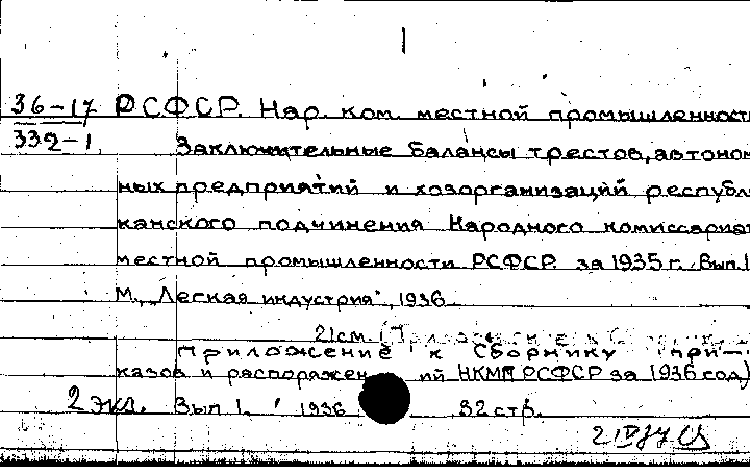 36-17 РСФСР. Нар. ком. местной промышленност
332-1
Заключительные балансы трестов, автоном
ных предприятий и хозорганизаций республ
канского подчинения Народного комиссариат
местной промышленности РСФСР. за 1935 г. Вып. 1
М., "Легкая индустрия", 1936
21 см.
Приложение к Сборнику при-
казов и распоряжен ий НКМП РСФСР за 1936 год)
2 экз. Вып 1. 1936 32 стр.